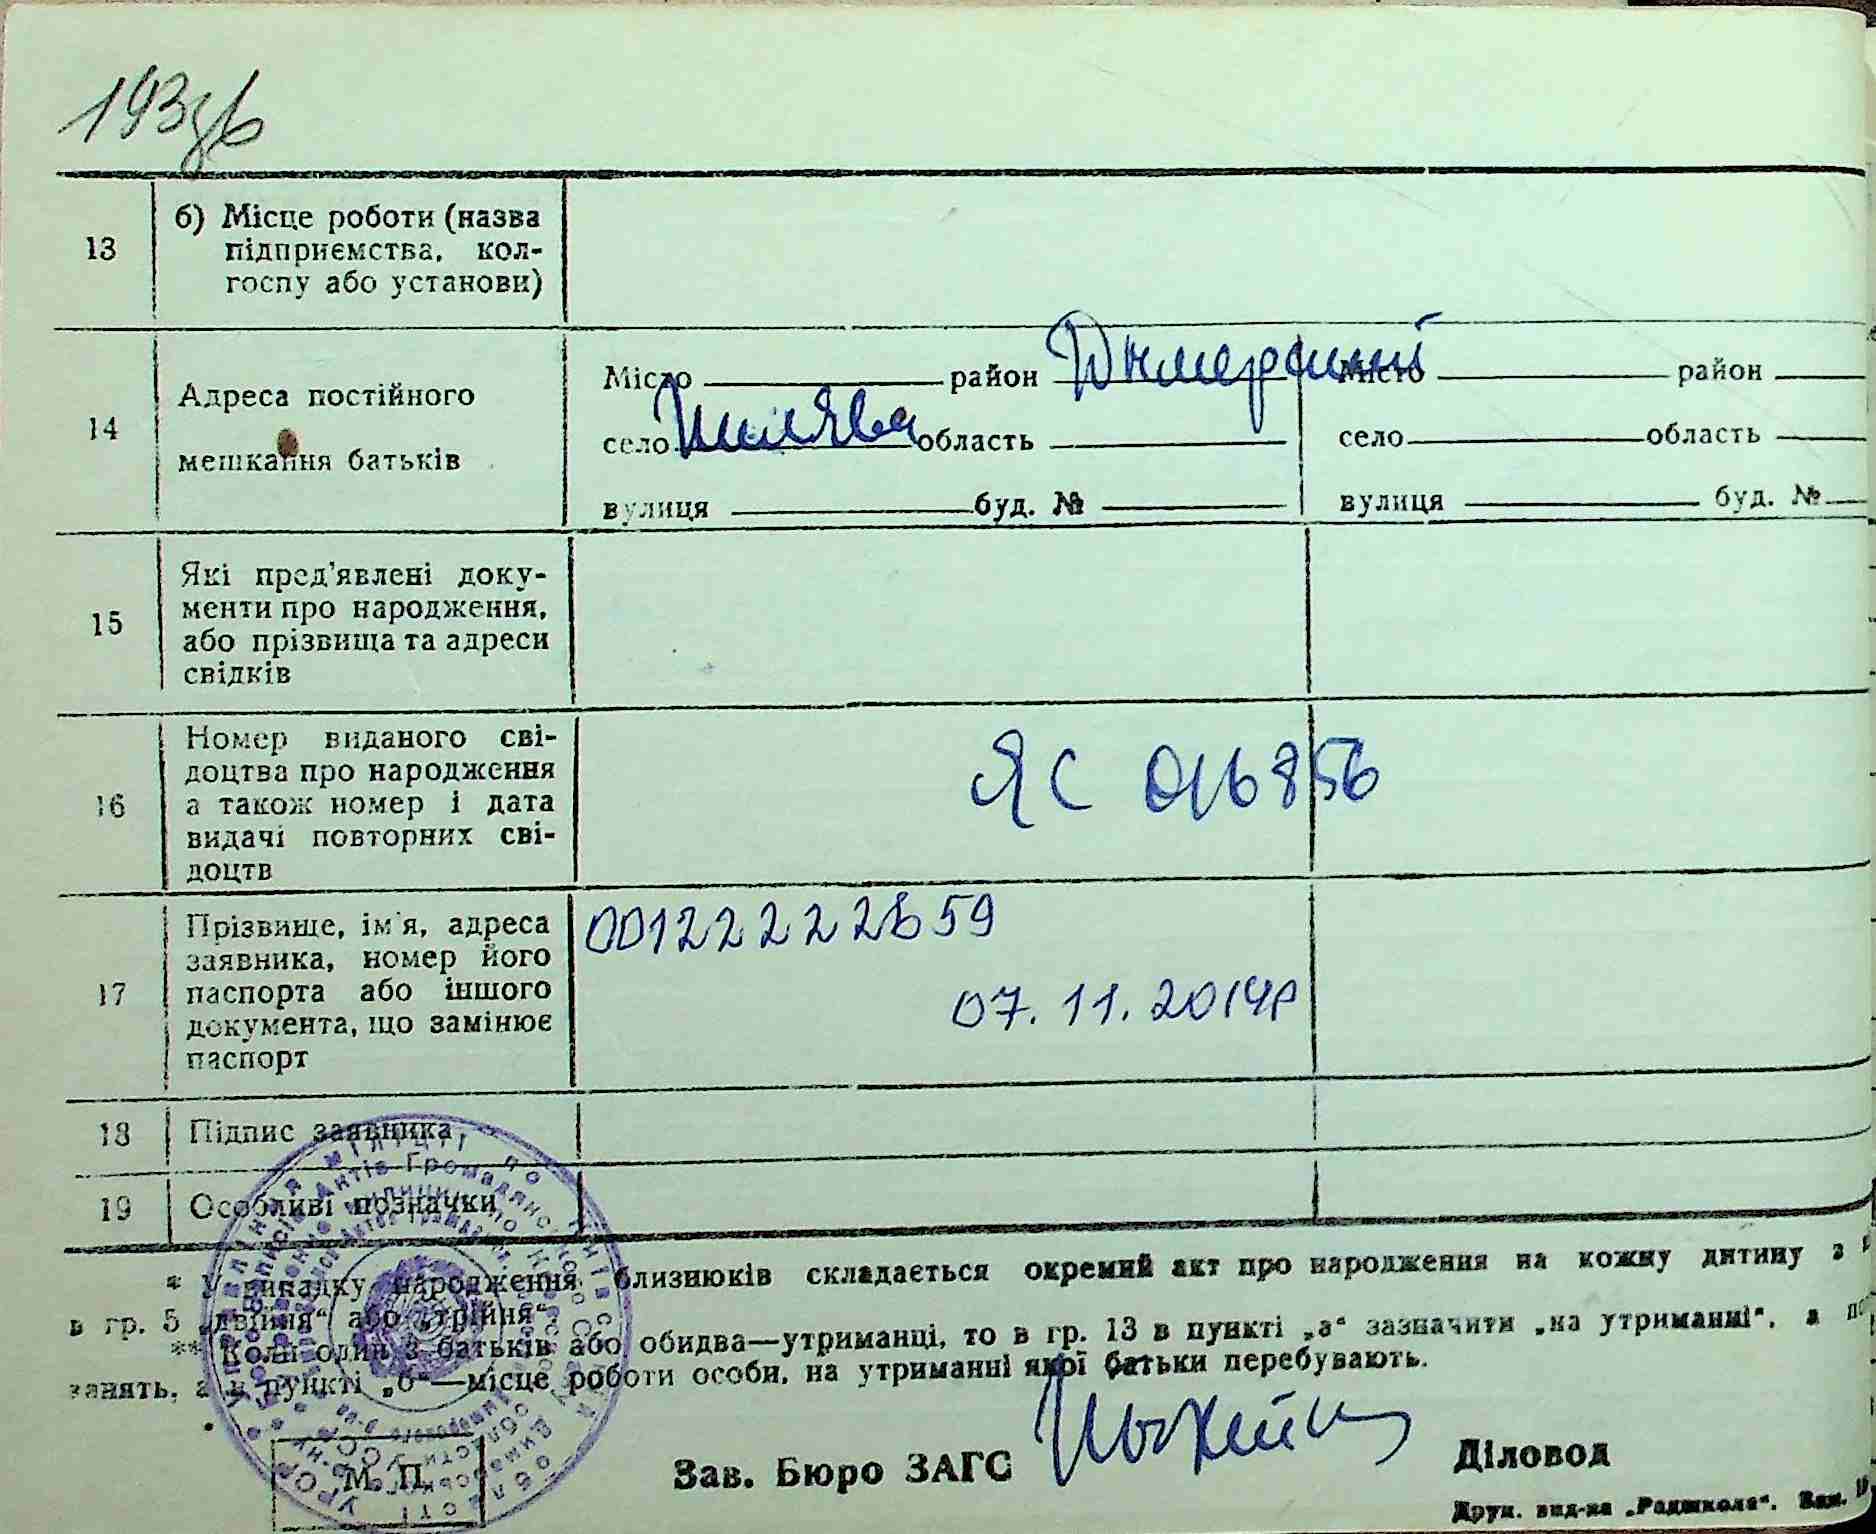 193зв
13
б) Місце роботи (назва
підприємства, кол-
госпу або установи)
14
Адреса постійного
мешкання батьків
Місто район Димерський
село область
вулиця буд. №
Місто район
село область
вулиця буд. №
15
Які пред'явлені доку-
менти про народження,
або прізвища та адреси
свідків
16
Номер виданого сві-
доцтва про народження
а також номер і дата
видачі повторних сві-
доцтв
ЯС 016856
17
Прізвище, ім'я, адреса
заявника, номер його
паспорта або іншого
документа, що замінює
паспорт
00122222659
07.11.2014р
18
Підпис заявника
19
Особливі позначки
* У випадку народження близнюків складається окремий акт про народження на кожну дитину з
в гр. 5 „двійня“ або „трійня“.
** Коли один з батьків або обидва—утриманці, то в гр. 13 в пункті „а“ зазначити „на утриманні“, а
занять, а в пункті „б“—місце роботи особи, на утриманні якої батьки перебувають.
М. П.
Зав. Бюро ЗАГС
Діловод
Друк. вид-ва „Радшкола“. Зам.